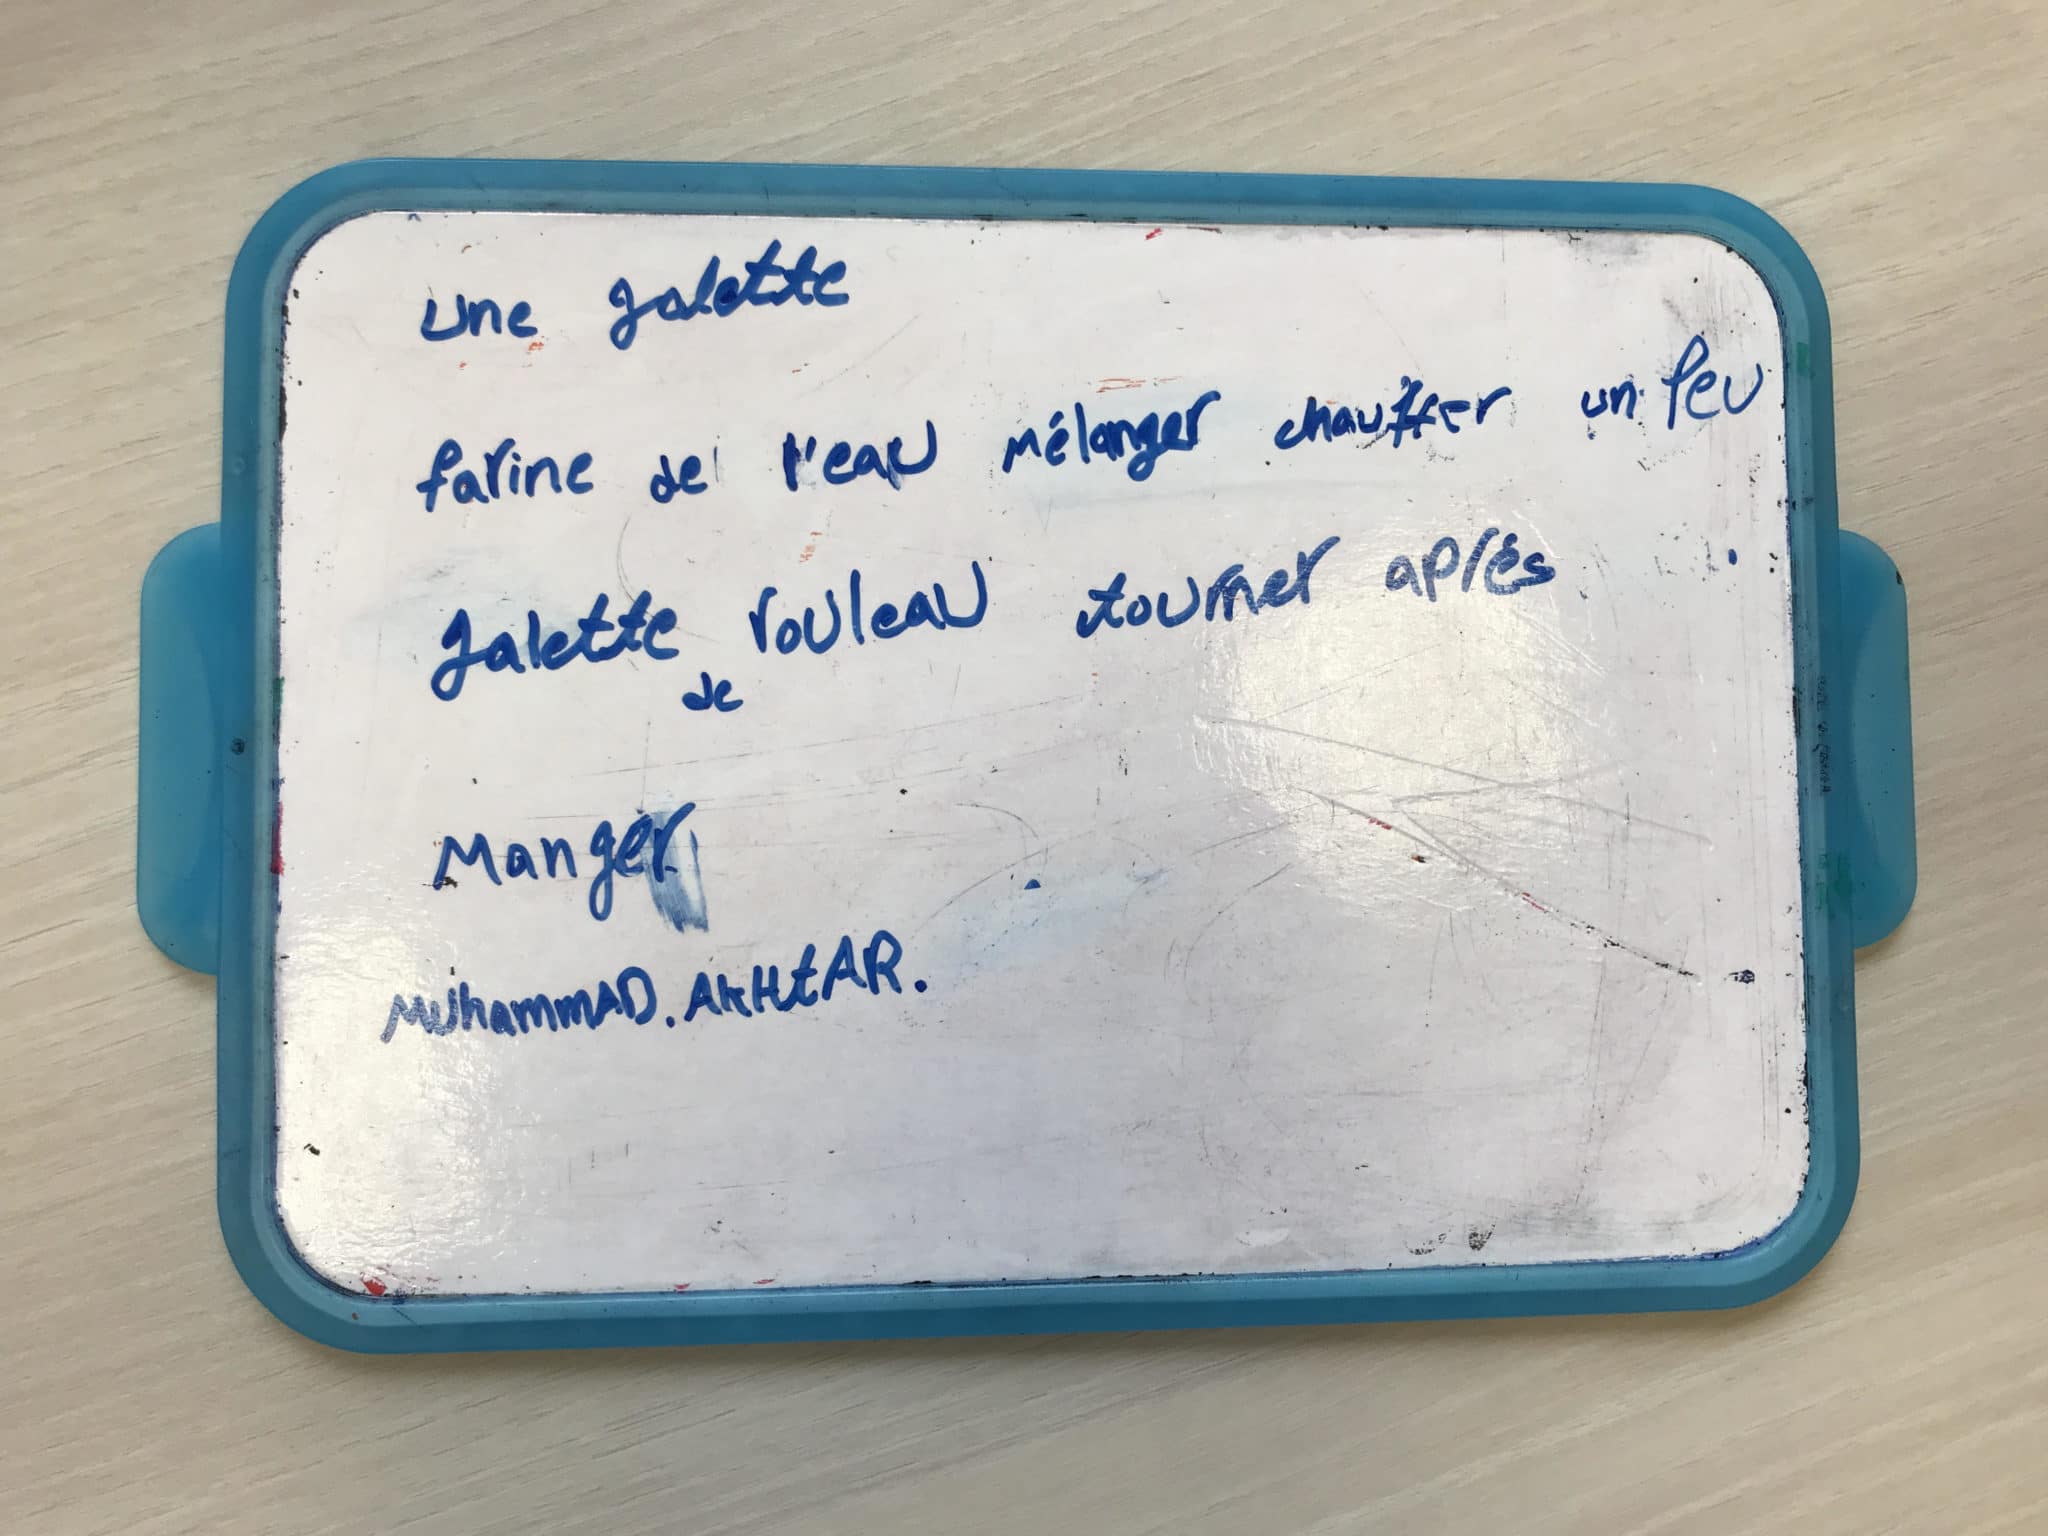 une galette
farine de l'eau mélanger chauffer un peu
galette rouleau tourner après
de
Manger
MuhammAD. AKHtAR.